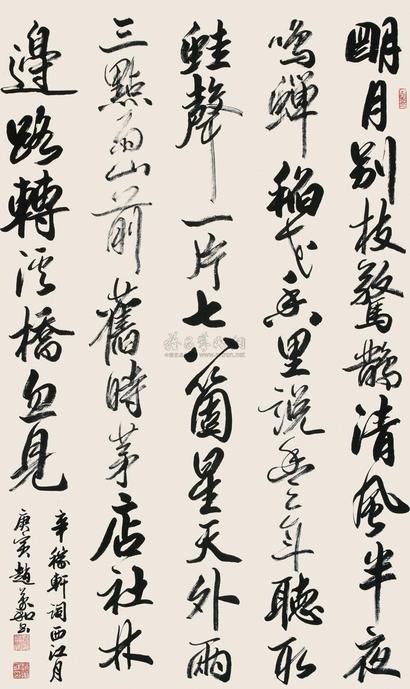 明月别枝驚鵲清風半夜
鳴蟬稻花香里説豐年聽取
蛙聲一片七八箇星天外兩
三點雨山前舊時茅店社林
邊路轉溪橋忽見
辛稼軒詞西江月
庚寅趙